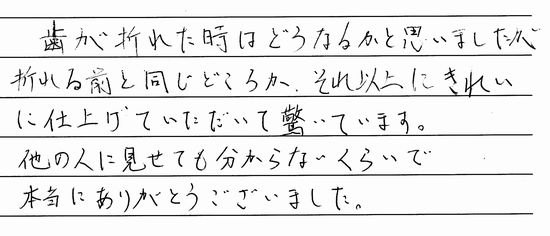 歯が折れた時はどうなるかと思いましたが
折れる前と同じどころか、それ以上にきれい
に仕上げていただいて驚いています。
他の人に見せても分からないくらいで
本当にありがとうございました。